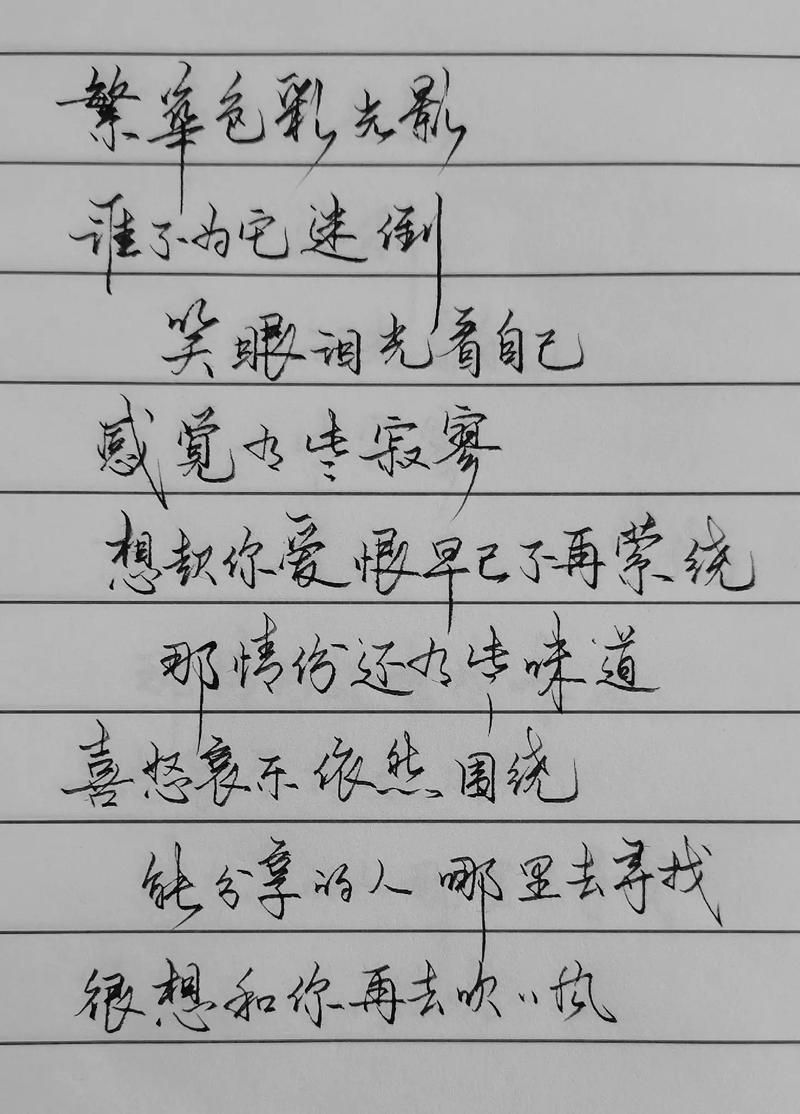 繁华色彩光影
谁不为它迷倒
笑眼泪光看自己
感觉有些寂寥
想起你爱恨早已不再萦绕
那情份还有些味道
喜怒哀乐依然围绕
能分享的人哪里去寻找
很想和你再去吹吹风